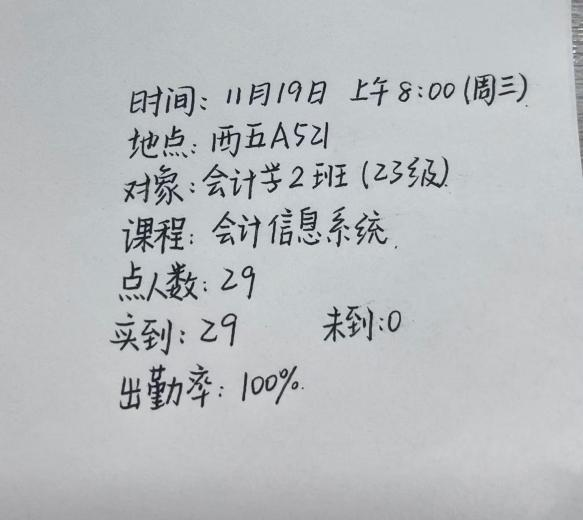 时间：11月19日 上午8:00(周三)
地点：西五A521
对象：会计学2班(23级)
课程：会计信息系统.
点人数：29
实到：29 未到:0
出勤率：100%.